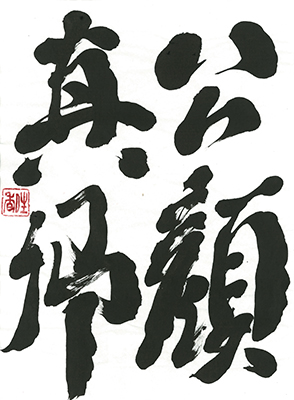 公顔
真卿